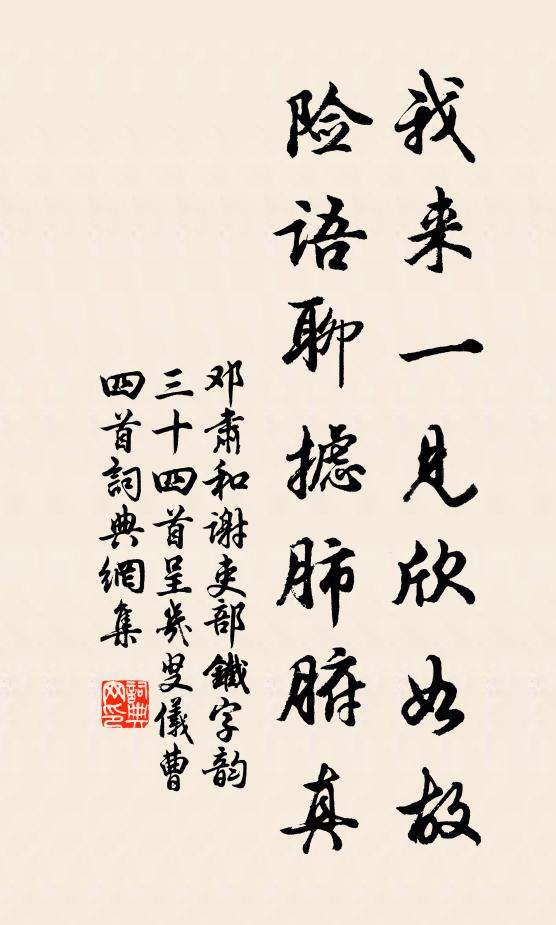 我来一见欣如故
险语聊摅肺腑真
邓肃和谢吏部铁字韵
三十四首呈几叟仪曹
四首词典网集
词典网印